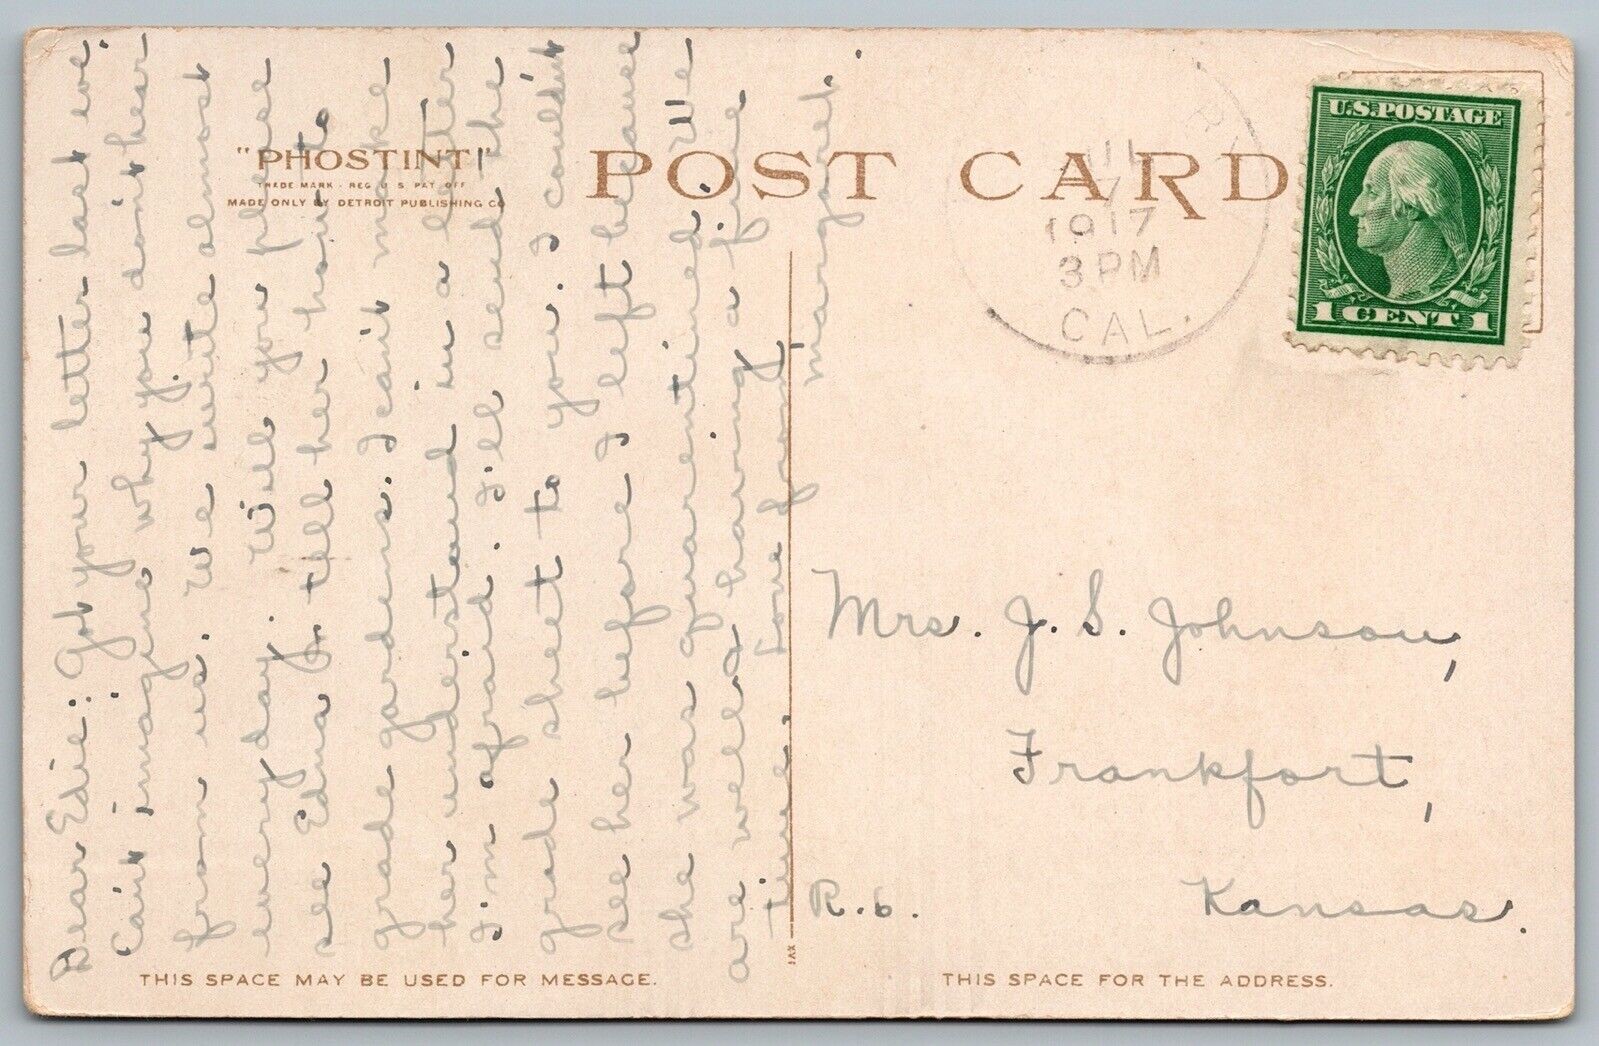 "PHOSTINT"
TRADE MARK - REG. U. S. PAT. OFF.
MADE ONLY BY DETROIT PUBLISHING CO
POST CARD
JUL
7
1917
3 PM
CAL.
U.S. POSTAGE
1 CENT 1
Dear Edie: Got your letter last eve.
Can't imagine why you don't hear
from us. We write almost
every day. Will you please
see Edna J. tell her how to
grade gardens. I can't make
her understand in a letter
I'm afraid. I'll send the
grade sheet to you. I couldn't
see her before I left because
she was quarentined. We
are well & having a fine
time. Love from,
Margaret.
Mrs. J. S. Johnson,
Frankfort,
Kansas.
R. 6.
THIS SPACE MAY BE USED FOR MESSAGE.
THIS SPACE FOR THE ADDRESS.